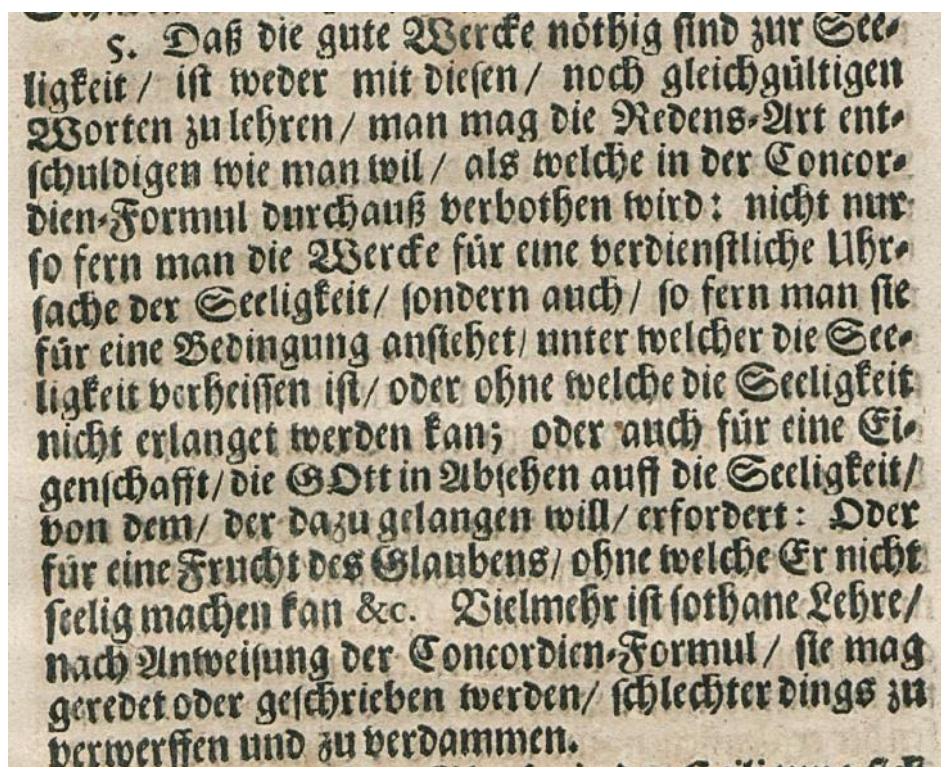 5. Daß die gute Wercke nöthig sind zur See-
ligkeit / ist weder mit diesen / noch gleichgültigen
Worten zu lehren / man mag die Redens-Art ent-
schuldigen wie man wil / als welche in der Concor-
dien-Formul durchauß verbothen wird: nicht nur
so fern man die Wercke für eine verdienstliche Uhr-
sache der Seeligkeit / sondern auch / so fern man sie
für eine Bedingung anstehet / unter welcher die See-
ligkeit verheissen ist / oder ohne welche die Seeligkeit
nicht erlanget werden kan; oder auch für eine Ei-
genschafft / die GOtt in Absehen auff die Seeligkeit /
von dem / der dazu gelangen will / erfordert: Oder
für eine Frucht des Glaubens / ohne welche Er nicht
seelig machen kan &c. Vielmehr ist sothane Lehre /
nach Anweisung der Concordien-Formul / sie mag
geredet oder geschrieben werden / schlechter dings zu
verwerffen und zu verdammen.